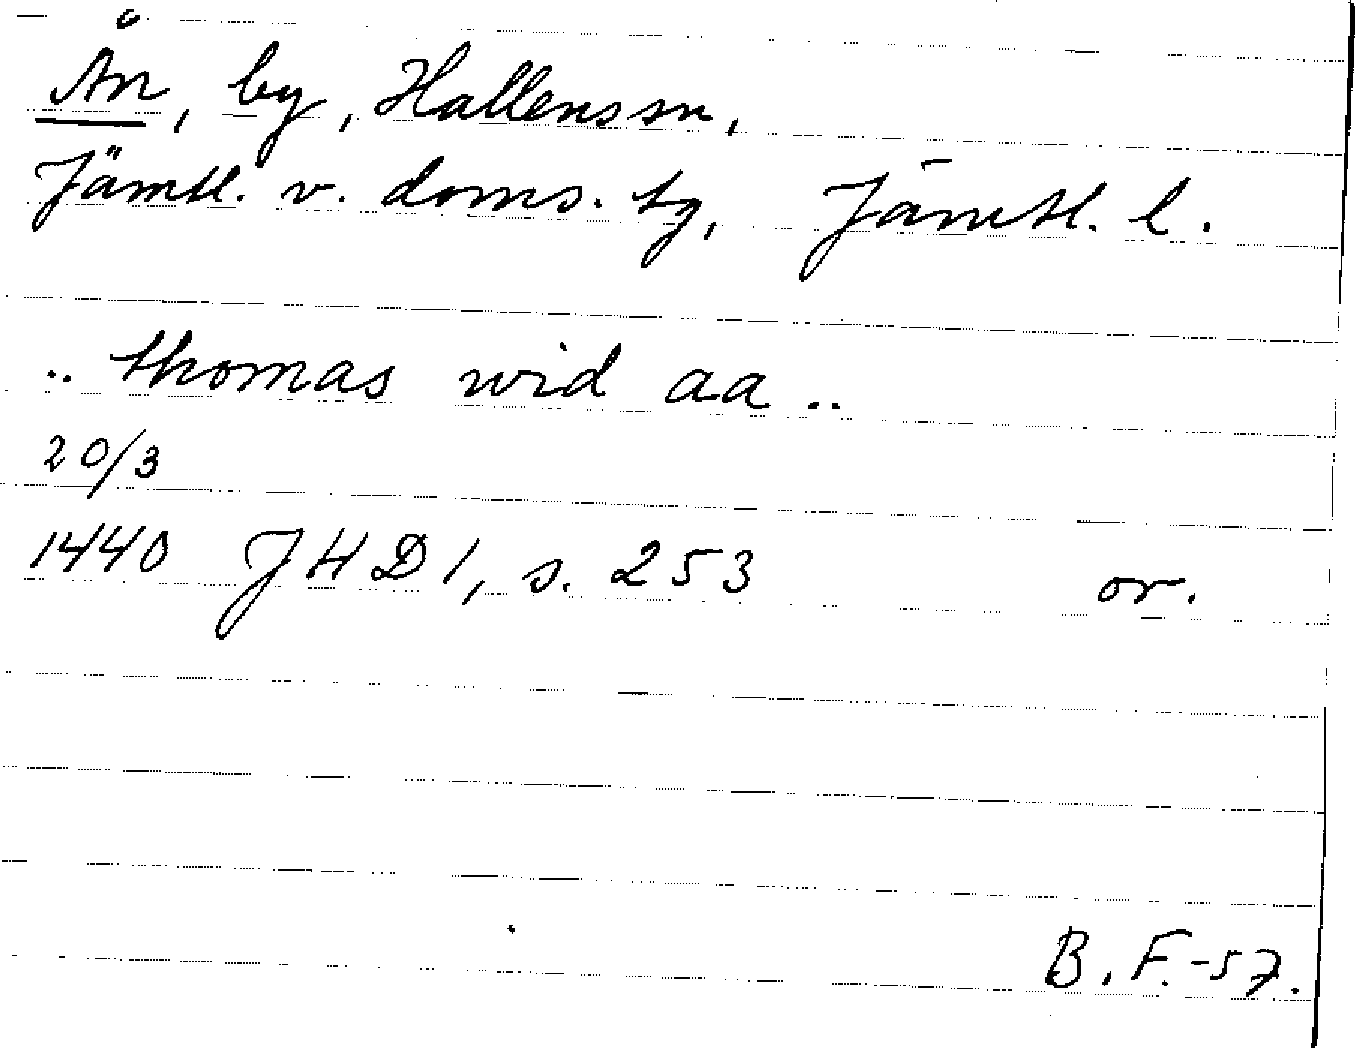 Ån, by, Hallens sn,
Jämtl. v. doms. tg, Jämtl. l.
.. thomas wid aa ..
20/3
1440 JHD 1, s. 253 or.
B. F. -57.